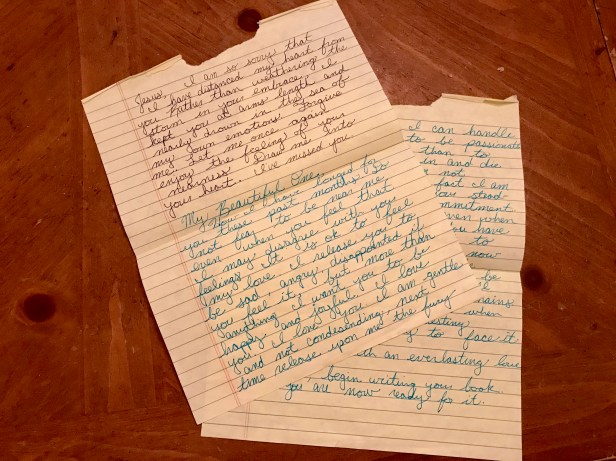 Jesus, I am so sorry that
I have distanced my heart from
you. Rather than weathering the
storm in your embrace I
kept you at arms length and
nearly drown in the sea of
my own emotions. Forgive
me. Let me once again
enjoy the feeling of your
nearness. Draw me into
your heart. I've missed you.
My Beautiful One,
How I have longed for
you these past months. Do
not fear to be near me
even when you feel that
I may disagree with your
feelings. It is ok to feel
my love. I release you to
be sad, angry, disappointed if
you feel it, but more than
anything I want you to be
happy and joyful. I love
you. I love you. I am gentle
and not condesending. next
time release upon me the fury
I can handle
to be passionate
than to
in and die
not
fact I am
your stead
mmitment
even when
you have
to
now
be
I
mains
when
asting
to face it
th an everlasting love
begin writing your book.
you are now ready for it.